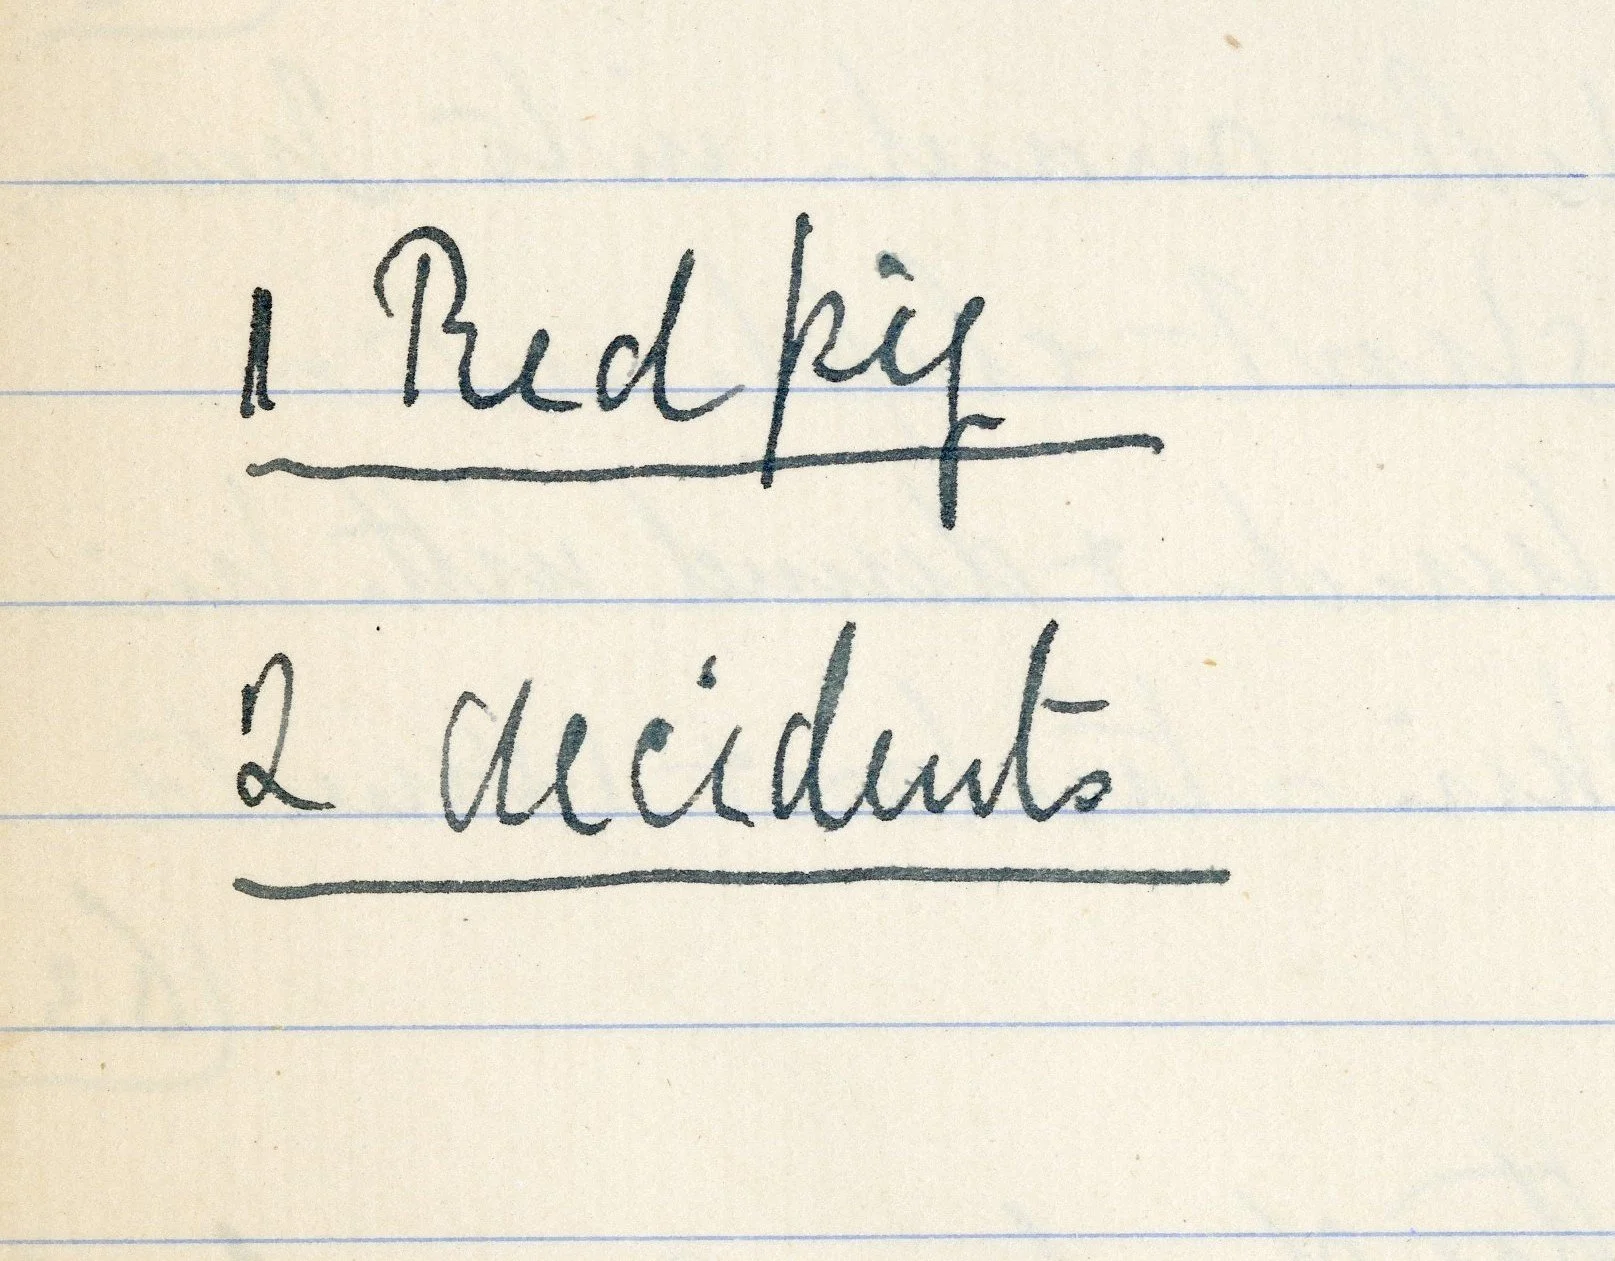 1 Red pig
2 decidents